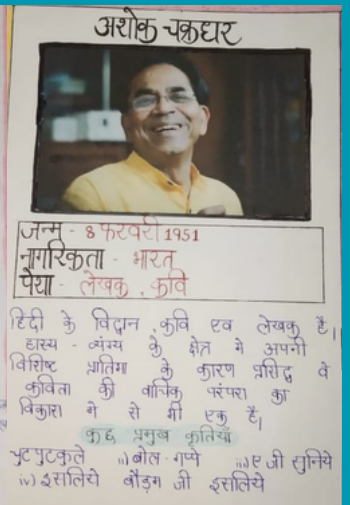 अशोक चक्रधर
जन्म - 8 फरवरी 1951
नागरिकता - भारत
पेशा - लेखक , कवि
हिंदी के विद्वान , कवि एव लेखक है।
हास्य - व्यंग्य के क्षेत्र मे अपनी
विशिष्ट प्रतिमा के कारण प्रसिद्ध वे
कविता की वाचिक परंपरा का
विकास मे से मी एक है।
कुछ प्रमुख कृतियाँ
चुटपुटकुले ii) बोल - गप्पे iii) ए जी सुनिये
iv) इसलिये बौड़म जी इसलिये